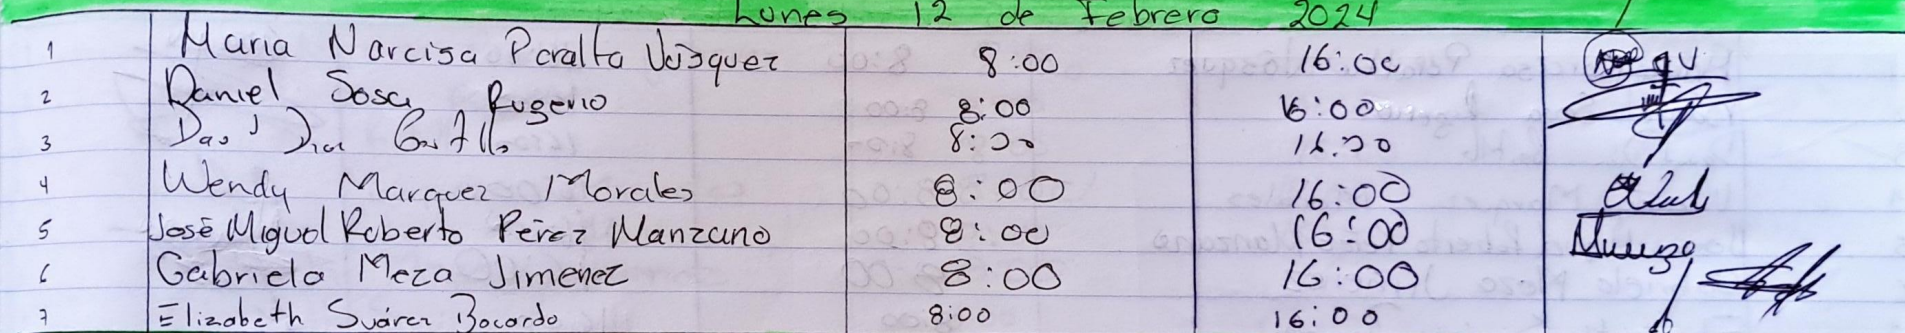 Lunes 12 de Febrero 2024
1 Maria Narcisa Peralta Vásquez 8:00 16:00
2 Daniel Sosa Eugenio 8:00 16:00
3 8:00 16:00
4 Wendy Marquez Morales 8:00 16:00
5 José Miguel Roberto Pérez Manzano 8:00 16:00
6 Gabriela Meza Jimenez 8:00 16:00
7 Elizabeth Suárez Bocardo 8:00 16:00